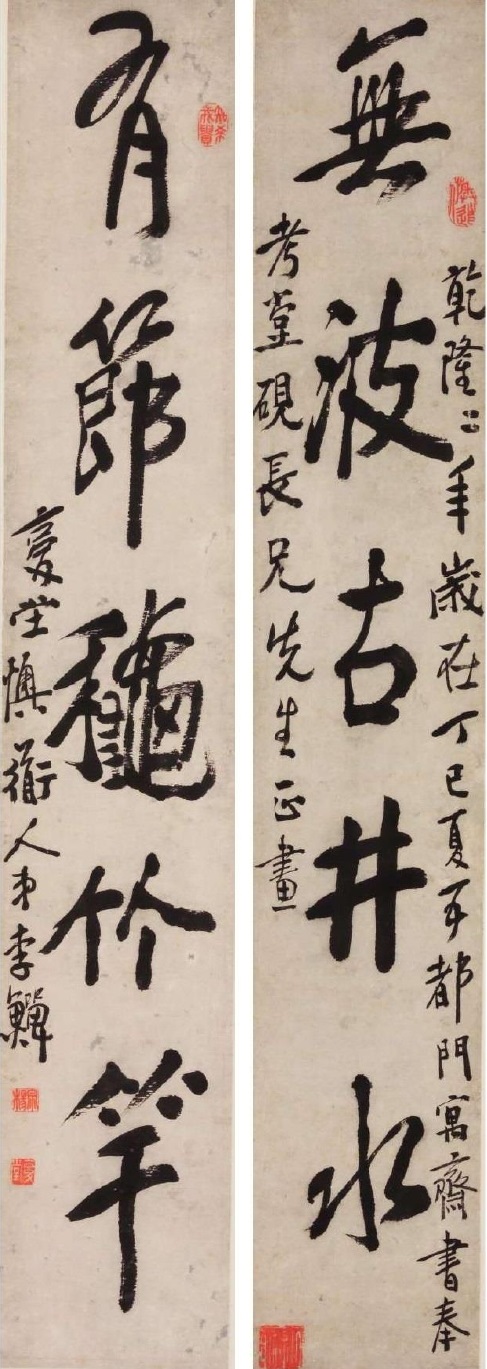 無波古井水
乾隆二年歲在丁巳夏于都門寓齋書奉
考堂硯長兄先生正畫
有節龝竹竿
复堂懊衟人弟李鱓